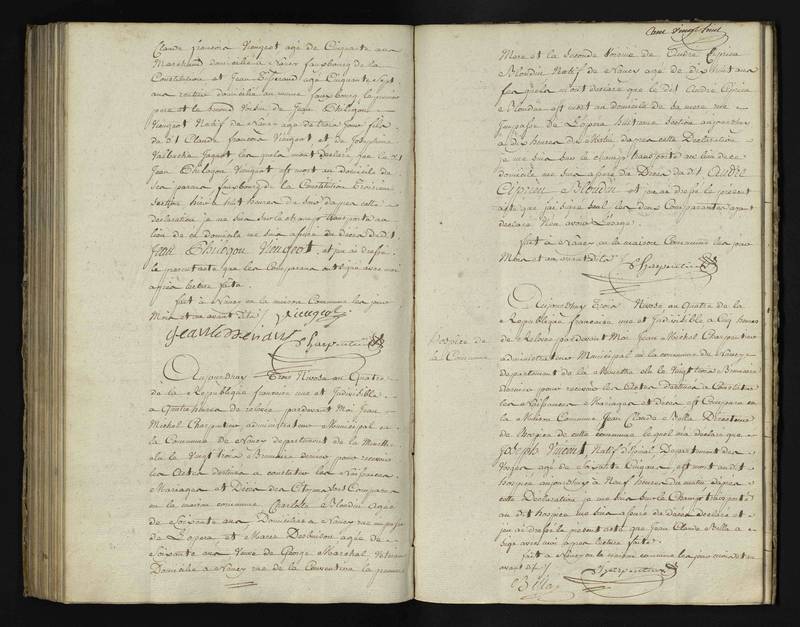 Claude francois Viengeot agé de Cinquante ans
Marchand domicilié a Nancy fauxbourg de la
Constitution et Jean Thiriaud agé Cinquante Sept
ans rentier domicilié au meme fauxbourg, le premier
pere et le second Voisin de Jean Philogon
Viengeot Natif de Nancy agé de trois jours fils
de dt Claude francois Viengeot et de Josephine
les quels m'ont declaré que le dt
Jean Philogon Viengeot est mort au domicile de
Ses parens fauxbourg de la Constitution Troisieme
Section hier a huit heures du Soir d'apres cette
declaration je me suis Sur le champ transporté au
lieu de ce domicile me suis assuré du deces du dt
Jean Philogon Viengeot, et j'ai dressé
le present acte que les Comparans ont signé avec moi
apres lecture faite.
fait a Nancy en la maison Commune les jour
Mois et an avant dits / Viengeot
Charpentier
Aujourd'huy Trois Nivose an Quatre
de la Republique francaise une et Indivisible
a Quatre heures de relevée pardevant Moi Jean
Michel Charpentier administrateur Municipal en
la Commune de Nancy departement de la Meurthe
elu le Vingt trois Brumaire dernier pour recevoir
les Actes destinés a constater les Naissances
Mariages et Deces des Citoyens sont Comparus
en la maison commune Charlotte Blondin agée
de Soixante ans Domiciliée a Nancy rue
de L'opera et Marie Desbuisson agée de
Soixante ans Veuve de George Marchal Veteran
Domiciliée a Nancy rue de la Convention la premiere
an vingt huit
Mere et la Seconde Voisine de André Ciprien
Blondin Natif de Nancy agé de dix huit ans
les quels m'ont declaré que le dit André Ciprien
Blondin est mort au domicile de sa mere rue
de L'opera huitieme Section aujourd'huy
a dix heures du Matin d'apres cette Declaration
je me suis sur le champ transporté au lieu de ce
domicile me suis assuré du Deces du dit André
Ciprien Blondin et j'ai dressé le présent
acte que j'ai signé seul les deux Comparantes ayant
declaré N'en avoir L'usage.
fait a Nancy en la maison Commune les jour
Mois et an avant dits
Charpentier
Hospice de
la Commune
Aujourd'huy Trois Nivose an Quatre de la
Republique francaise une et Indivisible a Cinq heures
de Relevée pardevant Moi Jean Michel Charpentier
administrateur Municipal en la commune de Nancy
departement de la Meurthe elu le Vingt trois Brumaire
dernier pour recevoir les Actes Destinés a Constater
les Naissances Mariages et Deces est Comparu en
la Maison Commune Jean Claude Billa Directeur
de l'hospice de cette commune le quel m'a declaré que
Joseph Vincent, Natif d'Epinal, Departement des
Vosges agé de Soixante Cinq ans, est mort au dit
hospice aujourd'huy a Neuf heures du matin d'apres
cette Declaration je me suis Sur le Champ transporté
au dit hospice me suis assuré du deces declaré et
j'en ai dressé le present acte que Jean Claude Billa a
Signé avec moi apres lecture faite.
fait a Nancy en la maison commune les jour mois et an
avant dt /
Billa
Charpentier